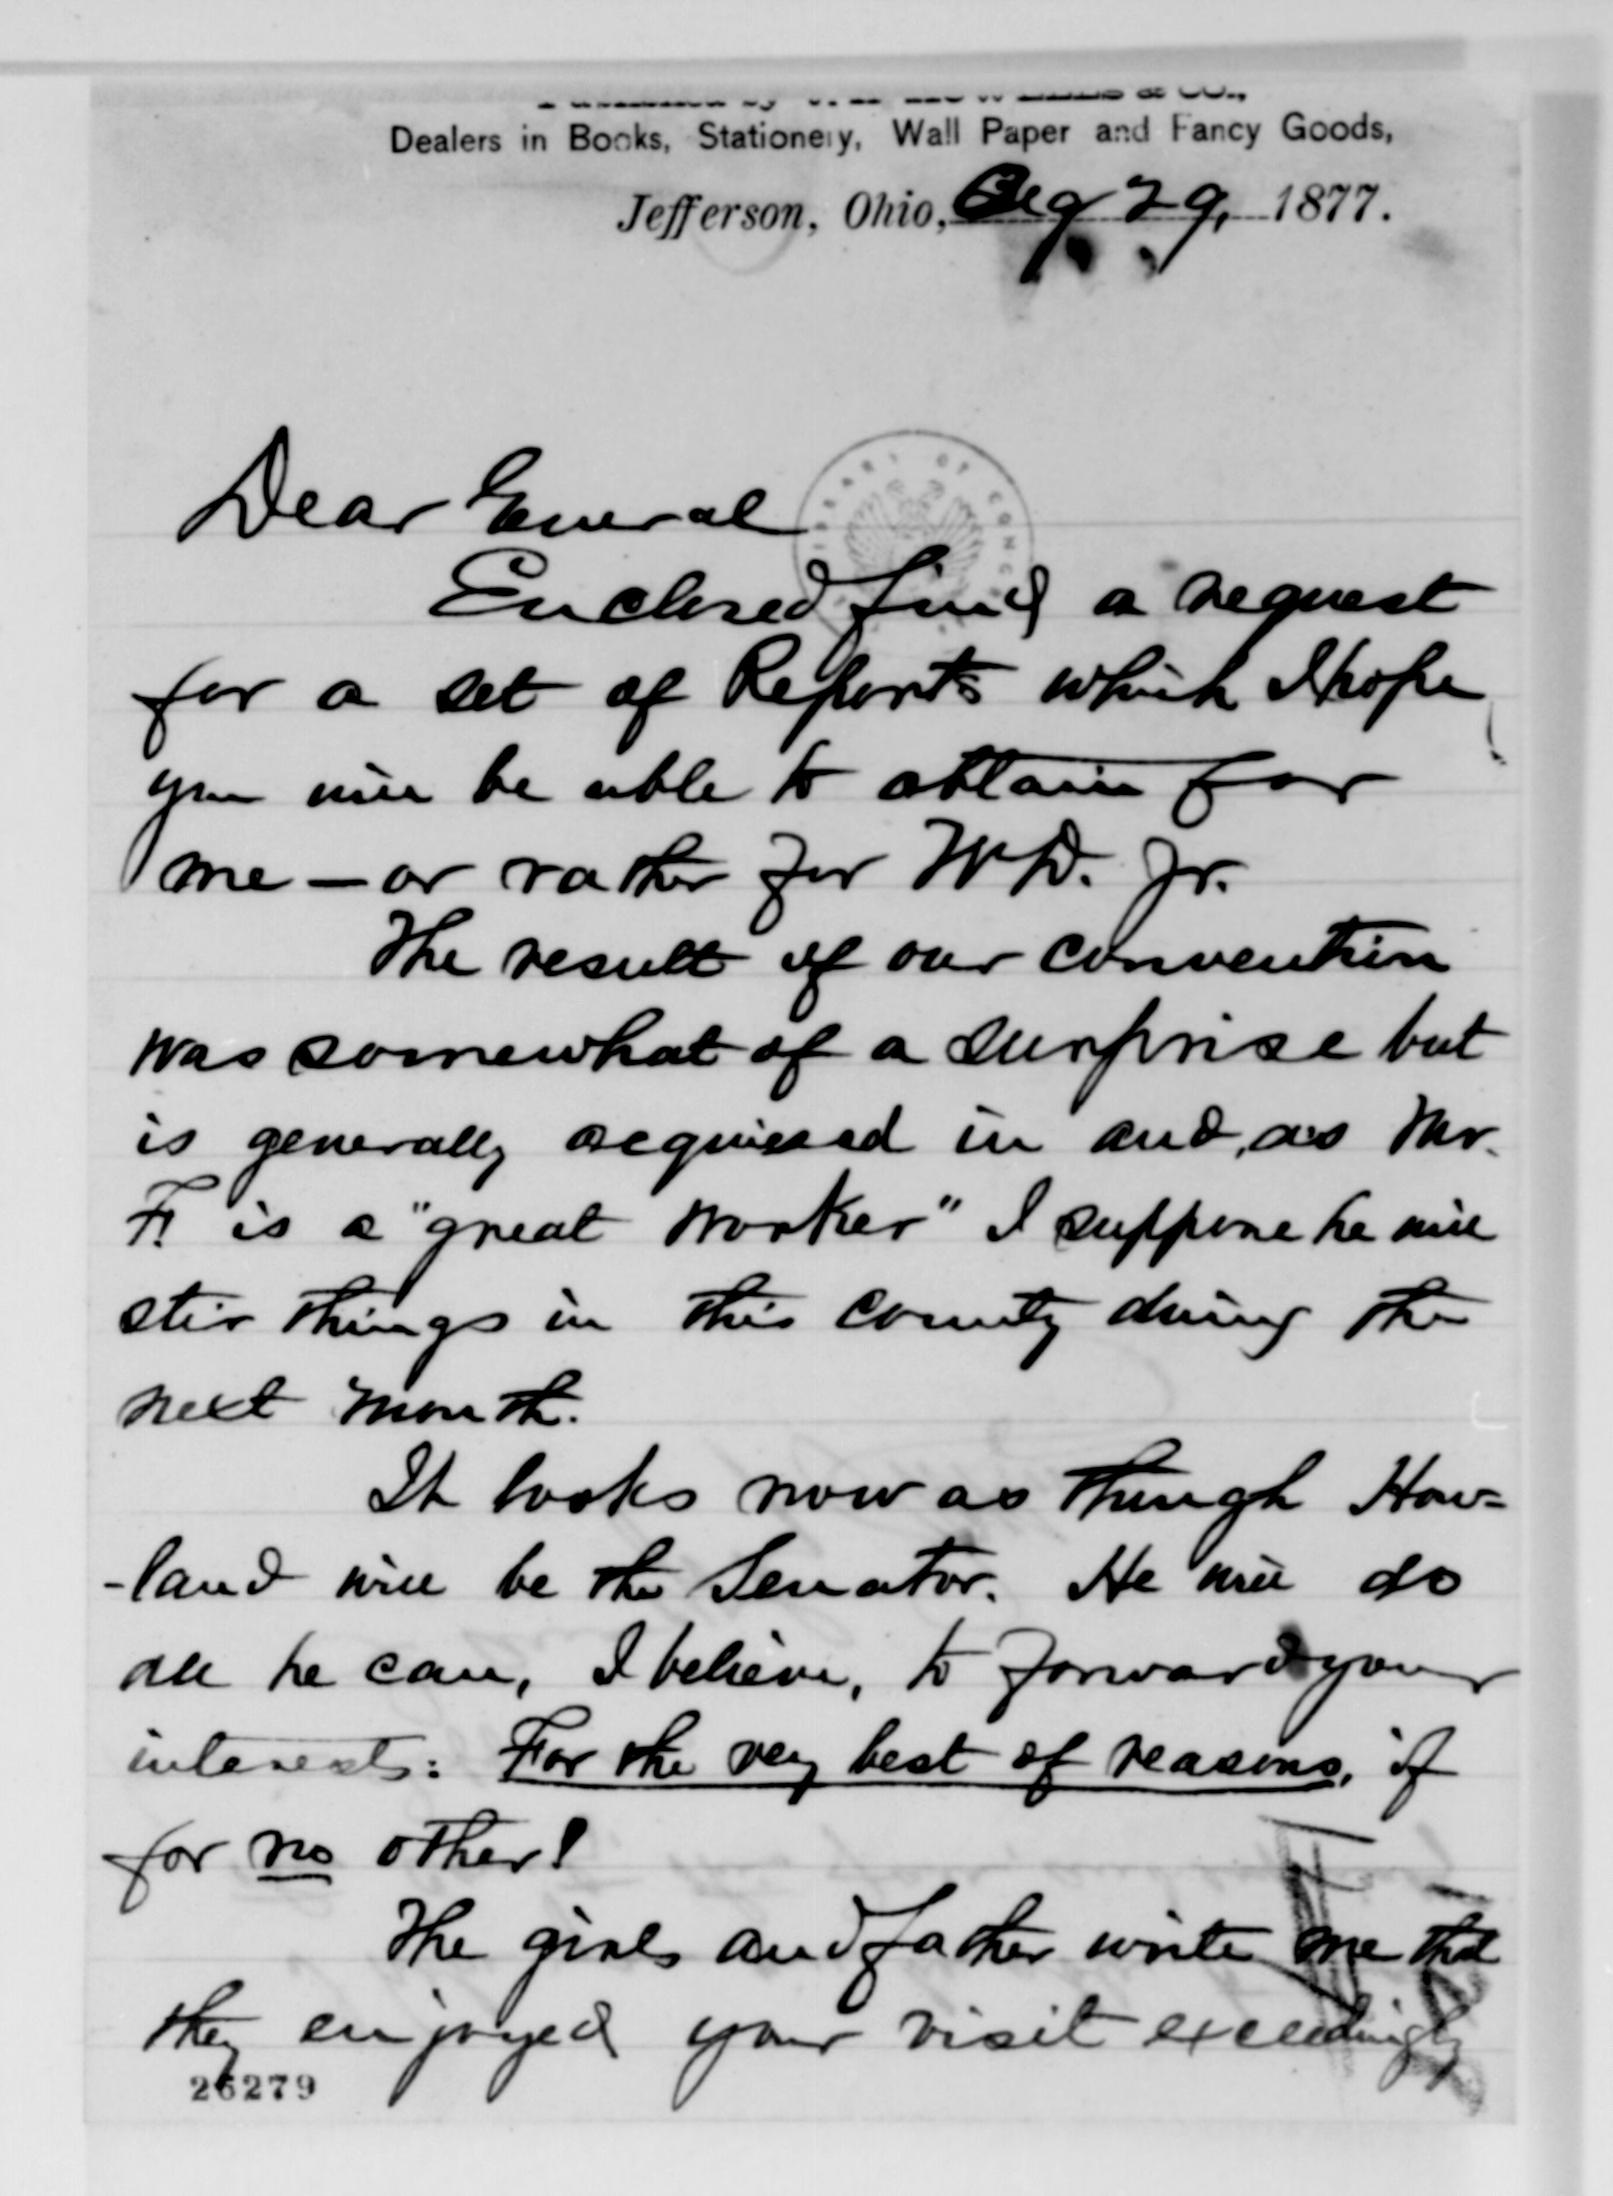 Published by J. A. HOWELLS & CO.,
Dealers in Books, Stationery, Wall Paper and Fancy Goods,
Jefferson, Ohio, Aug 29, 1877.
LIBRARY OF CONG
Dear General
Enclosed find a request
for a set of Reports which I hope
you will be able to obtain for
me — or rather for W. D. Jr.
The result of our convention
was somewhat of a surprise but
is generally acquiesed in and, as Mr.
F. is a "great worker" I suppose he will
stir things in this county during the
next month.
It looks now as though How-
-land will be the Senator. He will do
all he can, I believe, to forward your
interests: For the very best of reasons, if
for no other!
The girls and father write me that
they enjoyed your visit exceedingly
26279